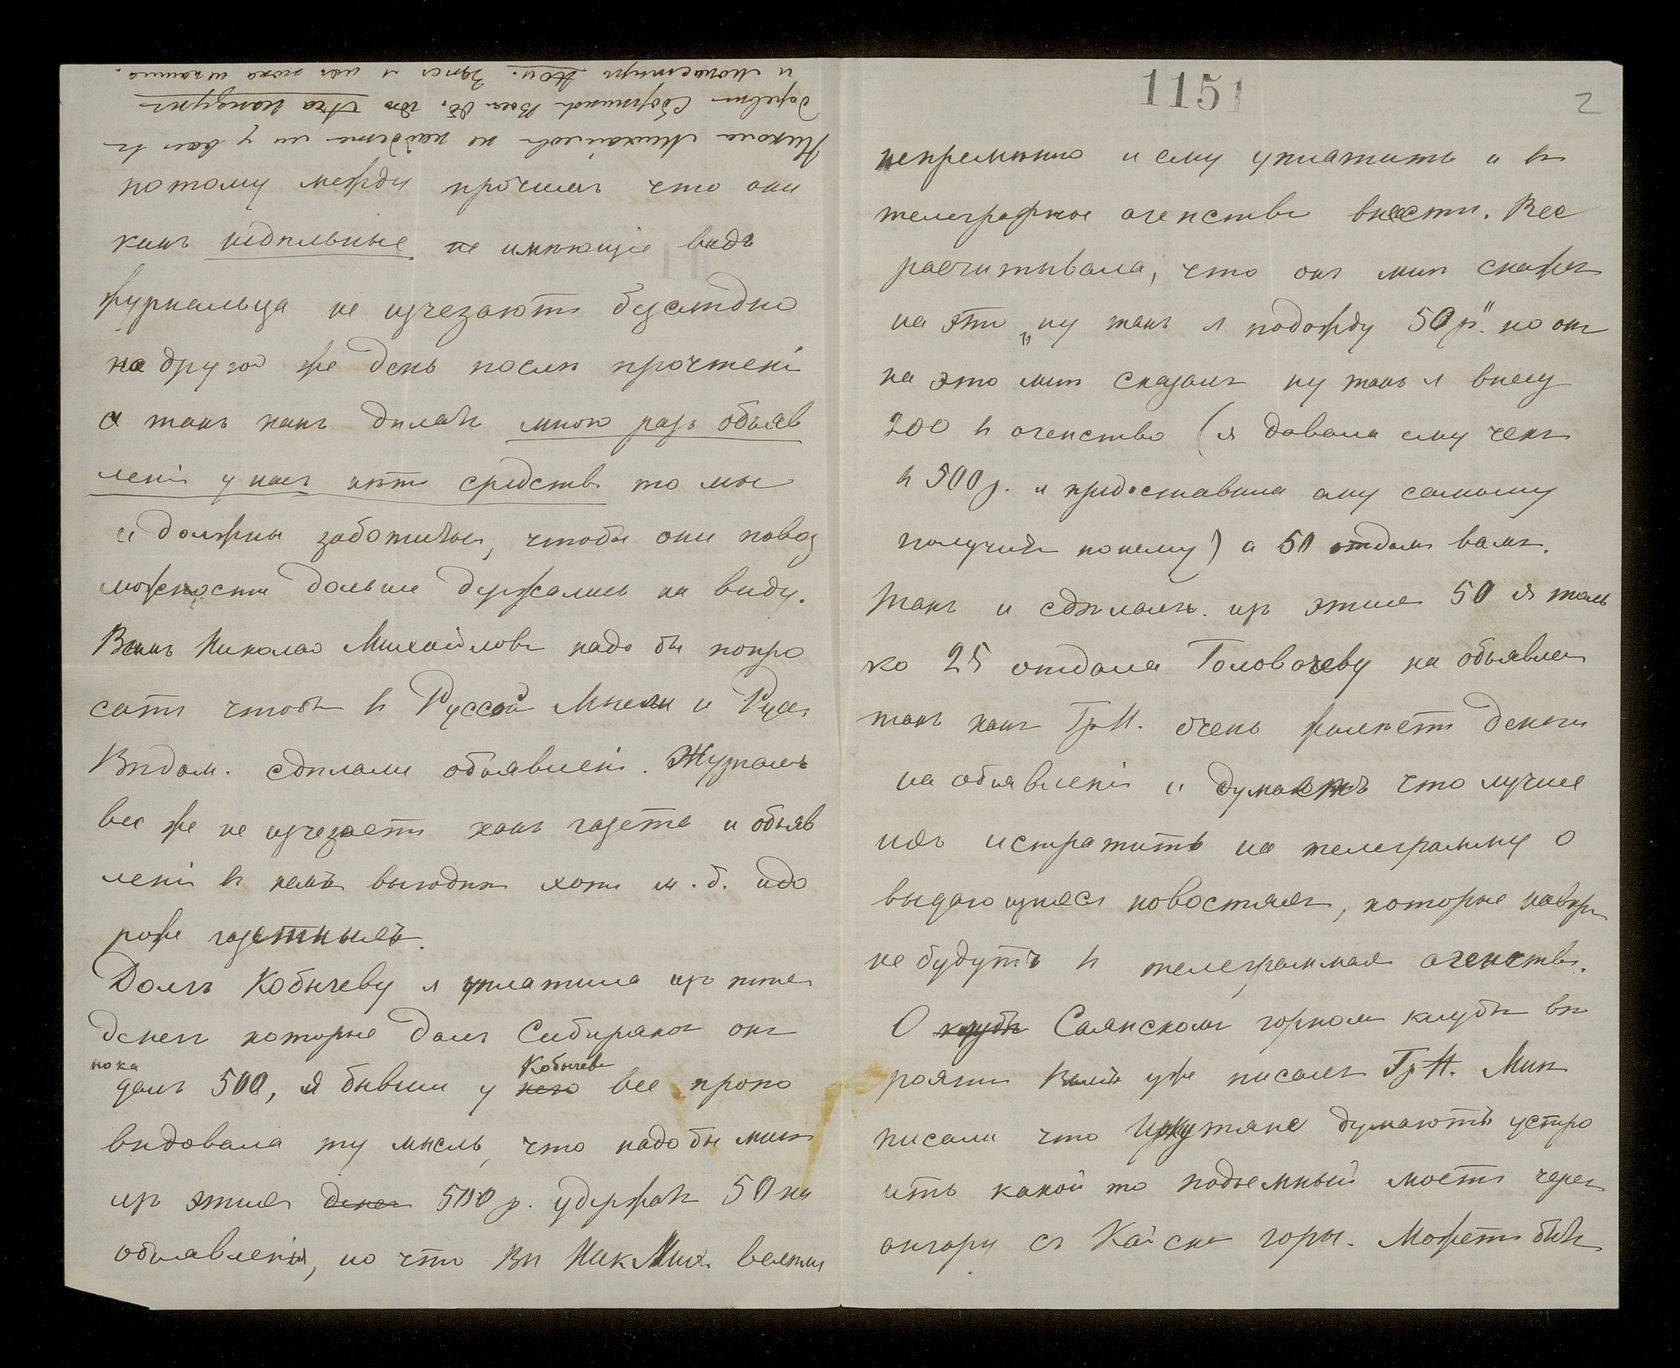 Никола Михайлов не найдете ли у вас въ
и монастырь
потому между прочимъ что они
какъ недѣльные не имѣющіе видъ
журнальца не изчезаютъ безслѣдно
на другой же день послѣ прочтені
а такъ какъ дѣлать много разъ объяв
лені у насъ нѣтъ средствъ то мы
и должны заботиться, чтобы они повоз
можности дольше держались на виду.
Васъ Николай Михайловъ надо бы попро
сить чтобы въ Русской Мысли и Русс
Вѣдом. сдѣлали объявлені. Журналъ
все же не изчезаетъ какъ газета и объяв
лені въ немъ выгоднѣ хотя м.б. и до
роже газетныхъ.
Долгъ Кобычеву я уплатила изъ тѣхъ
денегъ которые далъ Сибиряковъ онъ
пока
далъ 500, я бывши у него Кобычева все пропо
вѣдовала ту мысль, что надо бы мнѣ
изъ этихъ денег 500 р. удержать 50 на
объявленія, но что Вы Ник Мих. велѣли
1151
2
непремѣнно и ему уплатить и въ
телеграфное агенство внести. Все
расчитывала, что онъ мнѣ скажетъ
на это „ну такъ я подожду 50 р." но онъ
на это мнѣ сказалъ ну такъ я внесу
200 в агенство (я давала ему чекъ
в 500 р. и предоставила ему самому
получить по нему) а 50 отдамъ вамъ.
Такъ и сдѣлалъ. изъ этихъ 50 я толь
ко 25 отдала Головачеву на объявлен
такъ какъ Гр Н. очень жалѣетъ деньги
на объявлені и думаетъ что лучше
ихъ истратить на телеграмму о
выдающихся новостяхъ, которые навѣрн
не будутъ в телеграммах агенства.
О клубѣ Саянскомъ горномъ клубѣ вѣ
роятн Вамъ уже писалъ Гр Н. Мнѣ
писали что Иркутяне думаютъ устро
ить какой то подъемный мостъ через
ангару съ Кайской горы. Можетъ быть